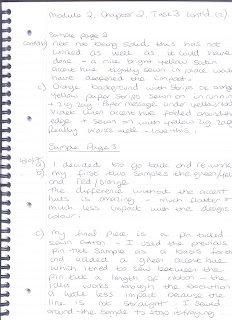 Module 2, Chapter 2, Task 3 contd (2)
Sample page 2
not being solid this has not
worked as well as it could have
done - a nice bright yellow satin
accent hue tightly sewn in place would
have deepened the impact.
c) Orange background with strips of
yellow paper strips sewn on in running
+ zig zag. Paper message under yellow
Violet then accent hue folded around the
edge + sewn on with yellow zig zag
really works well - love this.
Sample Page 3
a) I decided to go back and re-work
b) my first two samples the green/yellow
and red/orange.
The difference without the accent
hues is amazing - much flatter +
much less impact with the designs
colour.
c) My final piece is a pin tucked
sewn cotton - I used the previous
pin tuck sample as a basis for this
and added a green accent hue
which I tried to sew between the
pin tuck a length of ribbon - the
idea works though the execution
a little less impact because the
line is not straight. I sewed
around the sample to stop it fraying